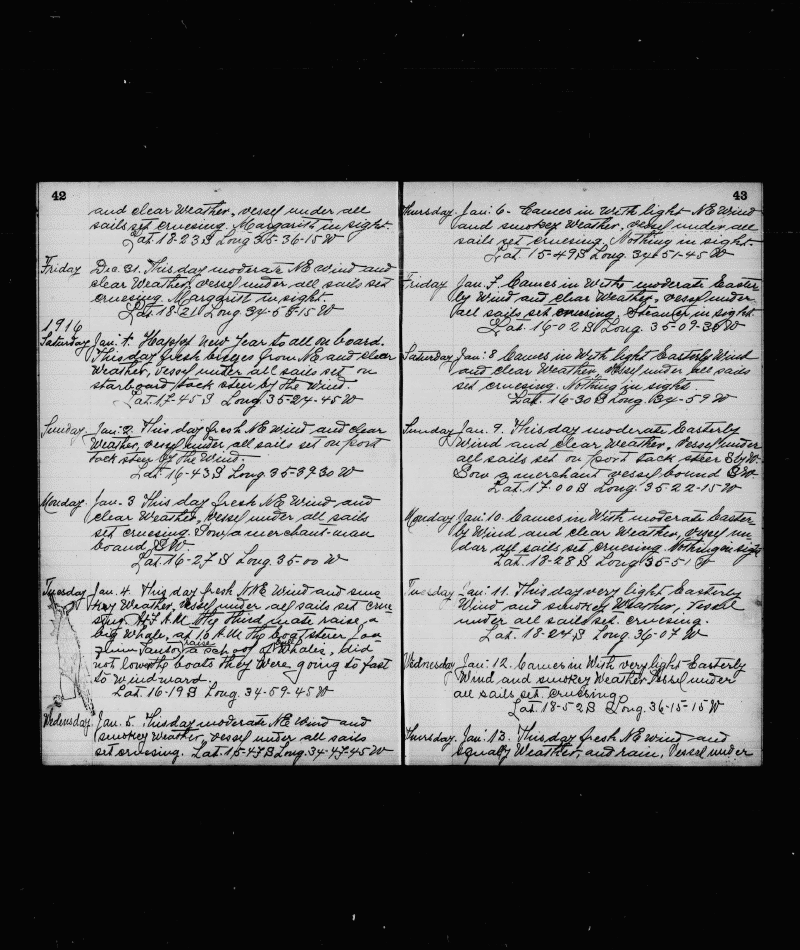 42
and clear Weather, vessel under all
sails set cruesing. Margarett in sight.
Lat. 18-23 S Long. 35-36-15 W
Friday Dec. 31. This day moderate NE Wind and
clear Weather, vessel under all sails set
cruesing. Margarett in sight.
Lat. 18-21 Long. 34-58-15 W
1916
Saturday Jan. 1. Happy new Year to all on board.
This day fresh brizes from NE and clear
Weather, vessel under all sails set on
starboard tack steer by the wind.
Lat. 17-45 S Long. 35-24-45 W
Sunday Jan. 2. This day fresh NE Wind and clear
Weather, vessel under all sails set on port
tack steer by the Wind.
Lat. 16-43 S Long. 35-39 30 W
Monday. Jan. 3 This day fresh NE Wind and
clear Weather, vessel under all sails
set cruesing. Sow a merchant-man
boand SW.
Lat. 16-27 S Long. 35-00 W
Tuesday Jan. 4. This day fresh NNE Wind and smo
key Weather, Vessel under all sails set crue
sing. At 7 A.M. the third mate raise a
big Whale, at 10 A.M. the boatsterer Joa
quim Santos raise a school of Whales, did
not lower the boats they were going to fast
to windward.
Lat. 16-19 S Long. 34-59-45 W
Wednesday. Jan. 5. This day moderate NE Wind and
smokey Weather, vessel under all sails
set cruesing. Lat. 15-47 S Long. 34-47-45 W
43
Thursday. Jan. 6. Cames in With light NE Wind
and smokey Weather, vessel under all
sails set cruesing. Nothing in sight.
Lat 15-49 S Long. 34-51-45 W
Friday Jan. 7. Cames in With moderate Easter
ly Wind and clear Weather, vessel under
all sails set cruesing. Steamer in sight.
Lat. 16-02 S Long. 35-09-30 W
Saturday Jan. 8 Cames in With light Easterly Wind
and clear Weather, vessel under all sails
set cruesing. Nothing in sight.
Lat. 16-30 S Long. 34-59 W
Sunday Jan. 9. This day moderate Easterly
Wind and clear Weather, Vessel under
all sails set on port tack steer S by W.
Sow a merchant vessel bound SW.
Lat. 17-00 S Long. 35-22-15 W
Monday Jan. 10. Cames in With moderate Easter
ly Wind and clear Weather, vessel un
der all sails set cruesing. Nothing in sight
Lat. 18-28 S Long 35-51 W
Tuesday Jan. 11. This day very light Easterly
Wind and smokey Weather, Vessel
under all sails set cruesing.
Lat. 18-24 S Long 36-07 W
Wednesday Jan. 12. Cames in With very light Easterly
Wind and smokey Weather Vessel under
all sails set cruesing.
Lat. 18-52 S Long. 36-15-15 W
Thursday. Jan. 13. This day fresh NE wind and
squaly Weather, and rain, Vessel under